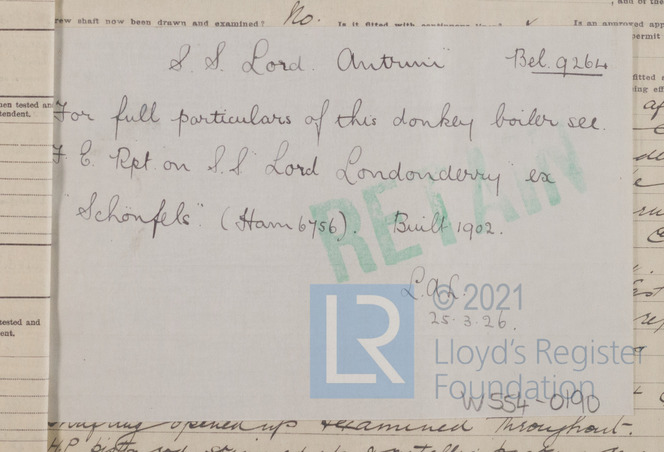 rew shaft now been drawn and examined? No. Is it fitted with continuous Is an approved
S. S. Lord Antrim" Bel. 9264
For full particulars of this donkey boiler see
F. E. Rpt. on S.S. Lord Londonderry" ex
"Schönfels" (Ham 6756). Built 1902.
RETAIN
25.3.26.
LR
© 2021
Lloyd's Register
Foundation
WSS4-0190
tested and
opened up examined throughout.